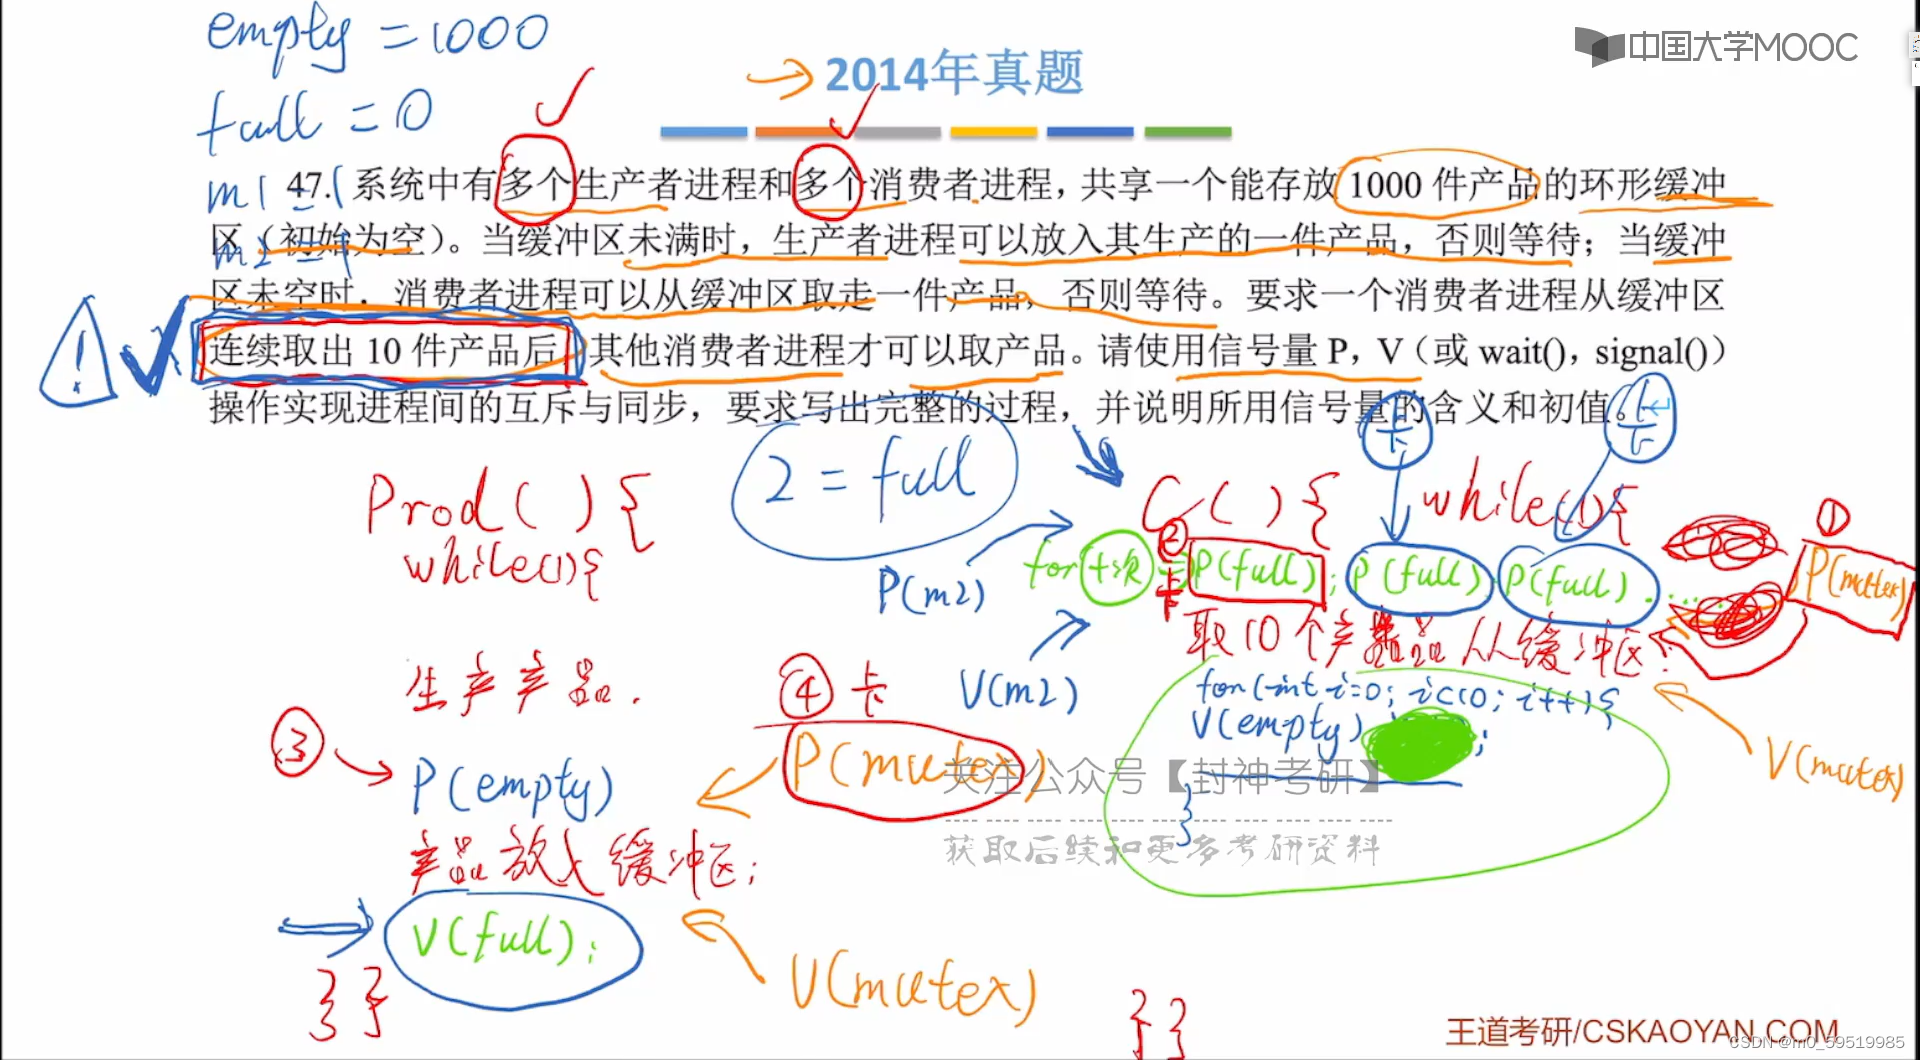 empty = 1000
中国大学MOOC
2014年真题
full = 0
m1 = 1
47. 系统中有多个生产者进程和多个消费者进程，共享一个能存放 1000 件产品的环形缓冲
区（初始为空）。当缓冲区未满时，生产者进程可以放入其生产的一件产品，否则等待；当缓冲
m2 = 1
区未空时，消费者进程可以从缓冲区取走一件产品，否则等待。要求一个消费者进程从缓冲区
!
连续取出 10 件产品后，其他消费者进程才可以取产品。请使用信号量 P，V（或 wait()，signal()）
操作实现进程间的互斥与同步，要求写出完整的过程，并说明所用信号量的含义和初值。
卡
卡
2 = full
Prod ( ) {
while(1){
C ( ) { while(1){
①
②
卡
for 十次 P(full); P(full) P(full) ......
P(mutex)
P(m2)
取10个产品从缓冲区;
V(m2)
for(int i=0; i<10; i++){
V(empty) ;
}
V(mutex)
生产产品.
④ 卡
③
P(empty)
P(mutex)
关注公众号【封神考研】
获取后续和更多考研资料
产品放入缓冲区;
V(full);
V(mutex)
} }
} }
王道考研/CSKAOYAN.COM
CSDN @m0_59519985